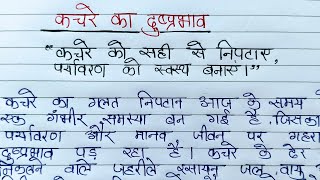 कचरे का दुष्प्रभाव
"कचरे को सही से निपटाए,
पर्यावरण को स्वस्थ बनाए।"
कचरे का गलत निपटान आज के समय
एक गंभीर समस्या बन गई है जिसका
पर्यावरण और मानव जीवन पर गहरा
दुष्प्रभाव पड़ रहा है। कचरे के ढेर
निकलने वाले जहरीले रसायन जल, वायु